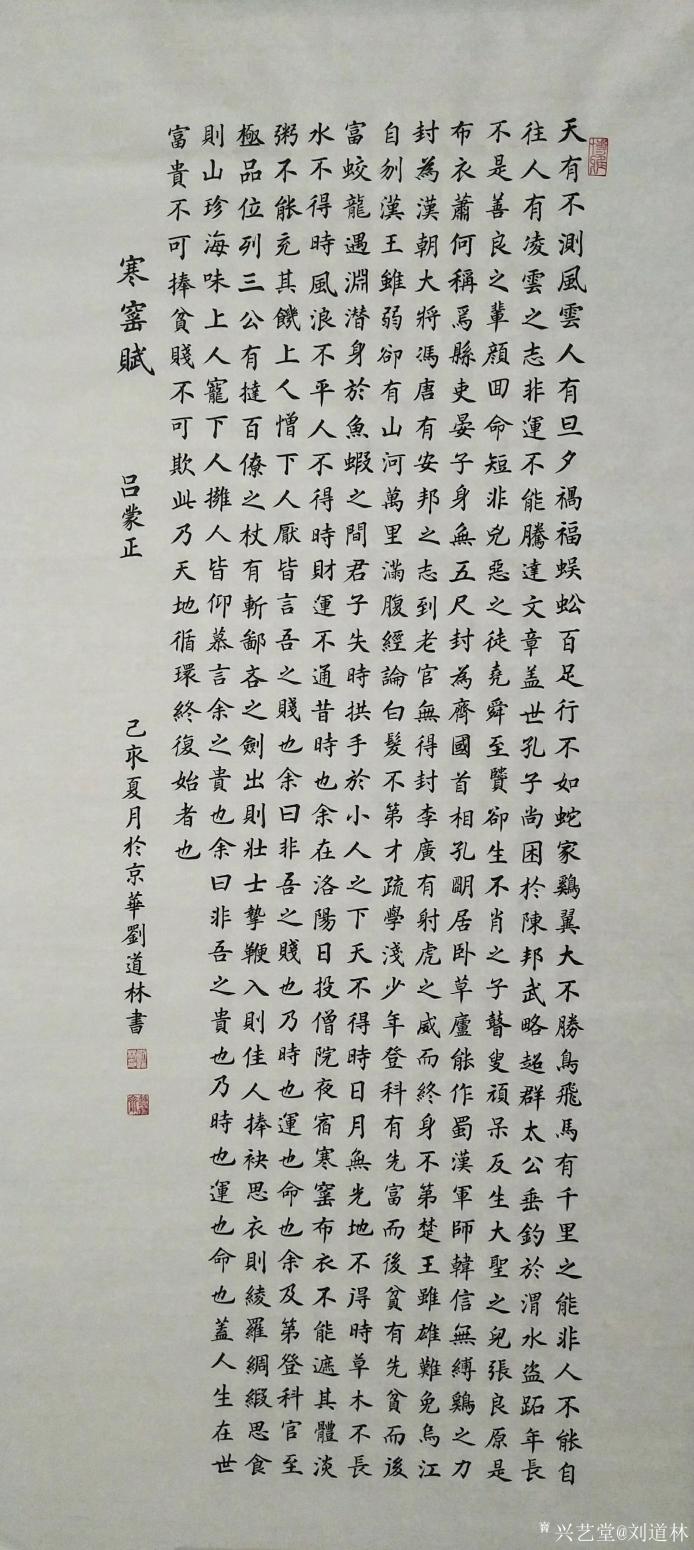 天有不測風雲人有旦夕禍福蜈蚣百足行不如蛇家鷄翼大不勝鳥飛馬有千里之能非人不能自
往人有凌雲之志非運不能騰達文章盖世孔子尚困於陳邦武略超群太公垂釣於渭水盗跖年長
不是善良之輩顔回命短非兇惡之徒堯舜至賢卻生不肖之子瞽叟頑呆反生大聖之兒張良原是
布衣蕭何稱爲縣吏晏子身無五尺封為齊國首相孔明居卧草廬能作蜀漢軍師韓信無縛鷄之力
封為漢朝大將馮唐有安邦之志到老官無得封李廣有射虎之威而終身不第楚王雖雄難免烏江
自刎漢王雖弱卻有山河萬里滿腹經論白髮不第才疏學淺少年登科有先富而後貧有先貧而後
富蛟龍遇淵潜身於魚蝦之間君子失時拱手於小人之下天不得時日月無光地不得時草木不長
水不得時風浪不平人不得時財運不通昔時也余在洛陽日投僧院夜宿寒窰布衣不能遮其體淡
粥不能充其饑上人憎下人厭皆言吾之賤也余曰非吾之賤也乃時也運也命也余及第登科官至
極品位列三公有撻百僚之杖有斬鄙吝之劍出則壯士摯鞭入則佳人捧袂思衣則綾羅綢緞思食
則山珍海味上人寵下人擁人皆仰慕言余之貴也余曰非吾之貴也乃時也運也命也蓋人生在世
富貴不可捧貧賤不可欺此乃天地循環終復始者也
寒窰賦 吕蒙正 己亥夏月於京華劉道林書
兴艺堂@刘道林